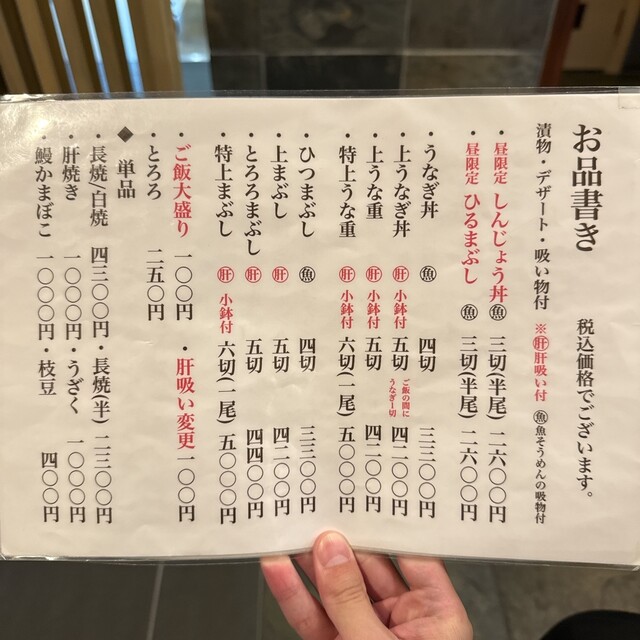 お品書き 税込価格でございます。
漬物・デザート・吸い物付 ※㊙肝吸い付 ㊙魚そうめんの吸物付
・昼限定 しんじょう丼 魚 三切(半尾) 二六〇〇円
・昼限定 ひるまぶし 魚 三切(半尾) 二六〇〇円
・うなぎ丼 魚 四切 三三〇〇円
・上うなぎ丼 肝 小鉢付 五切 ご飯の間にうなぎ一切 四二〇〇円
・上うな重 肝 小鉢付 五切 四二〇〇円
・特上うな重 肝 小鉢付 六切(一尾) 五〇〇〇円
・ひつまぶし 魚 四切 三三〇〇円
・上まぶし 肝 五切 四二〇〇円
・とろろまぶし 肝 五切 四四〇〇円
・特上まぶし 肝 小鉢付 六切(一尾) 五〇〇〇円
・ご飯大盛り 一〇〇円 ・肝吸い変更 一〇〇円
・とろろ 二五〇円
◆単品
・長焼/白焼 四三〇〇円 ・長焼(半) 二三〇〇円
・肝焼き 一〇〇〇円 ・うざく 一〇〇〇円
・鰻かまぼこ 一〇〇〇円 ・枝豆 四〇〇円